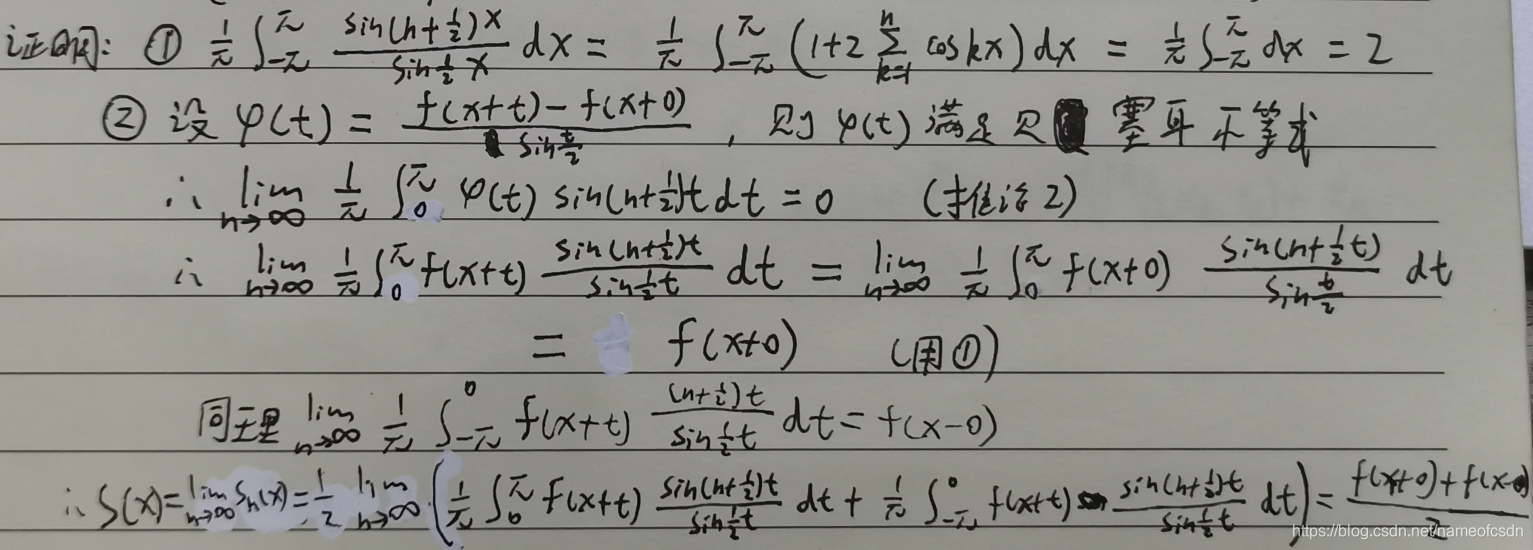 证明: ① \frac{1}{π} ∫_{-π}^{π} \frac{sin(n+\frac{1}{2})x}{sin\frac{1}{2}x} dx = \frac{1}{π} ∫_{-π}^{π} (1+2 \sum_{k=1}^{n} cos kx) dx = \frac{1}{π} ∫_{-π}^{π} dx = 2
② 设 φ(t) = \frac{f(x+t) - f(x+0)}{sin\frac{t}{2}}, 则 φ(t) 满足贝塞耳不等式
∴ \lim_{n→∞} \frac{1}{π} ∫_{0}^{π} φ(t) sin(n+\frac{1}{2})t dt = 0 (推论2)
∴ \lim_{n→∞} \frac{1}{π} ∫_{0}^{π} f(x+t) \frac{sin(n+\frac{1}{2})t}{sin\frac{1}{2}t} dt = \lim_{n→∞} \frac{1}{π} ∫_{0}^{π} f(x+0) \frac{sin(n+\frac{1}{2}t)}{sin\frac{t}{2}} dt
= f(x+0) (用①)
同理 \lim_{n→∞} \frac{1}{π} ∫_{-π}^{0} f(x+t) \frac{(n+\frac{1}{2})t}{sin\frac{1}{2}t} dt = f(x-0)
∴ S(x) = \lim_{n→∞} S_n(x) = \frac{1}{2} \lim_{n→∞} (\frac{1}{π} ∫_{0}^{π} f(x+t) \frac{sin(n+\frac{1}{2})t}{sin\frac{1}{2}t} dt + \frac{1}{π} ∫_{-π}^{0} f(x+t) \frac{sin(n+\frac{1}{2})t}{sin\frac{1}{2}t} dt) = \frac{f(x+0)+f(x-0)}{2}
https://blog.csdn.net/nameofcsdn